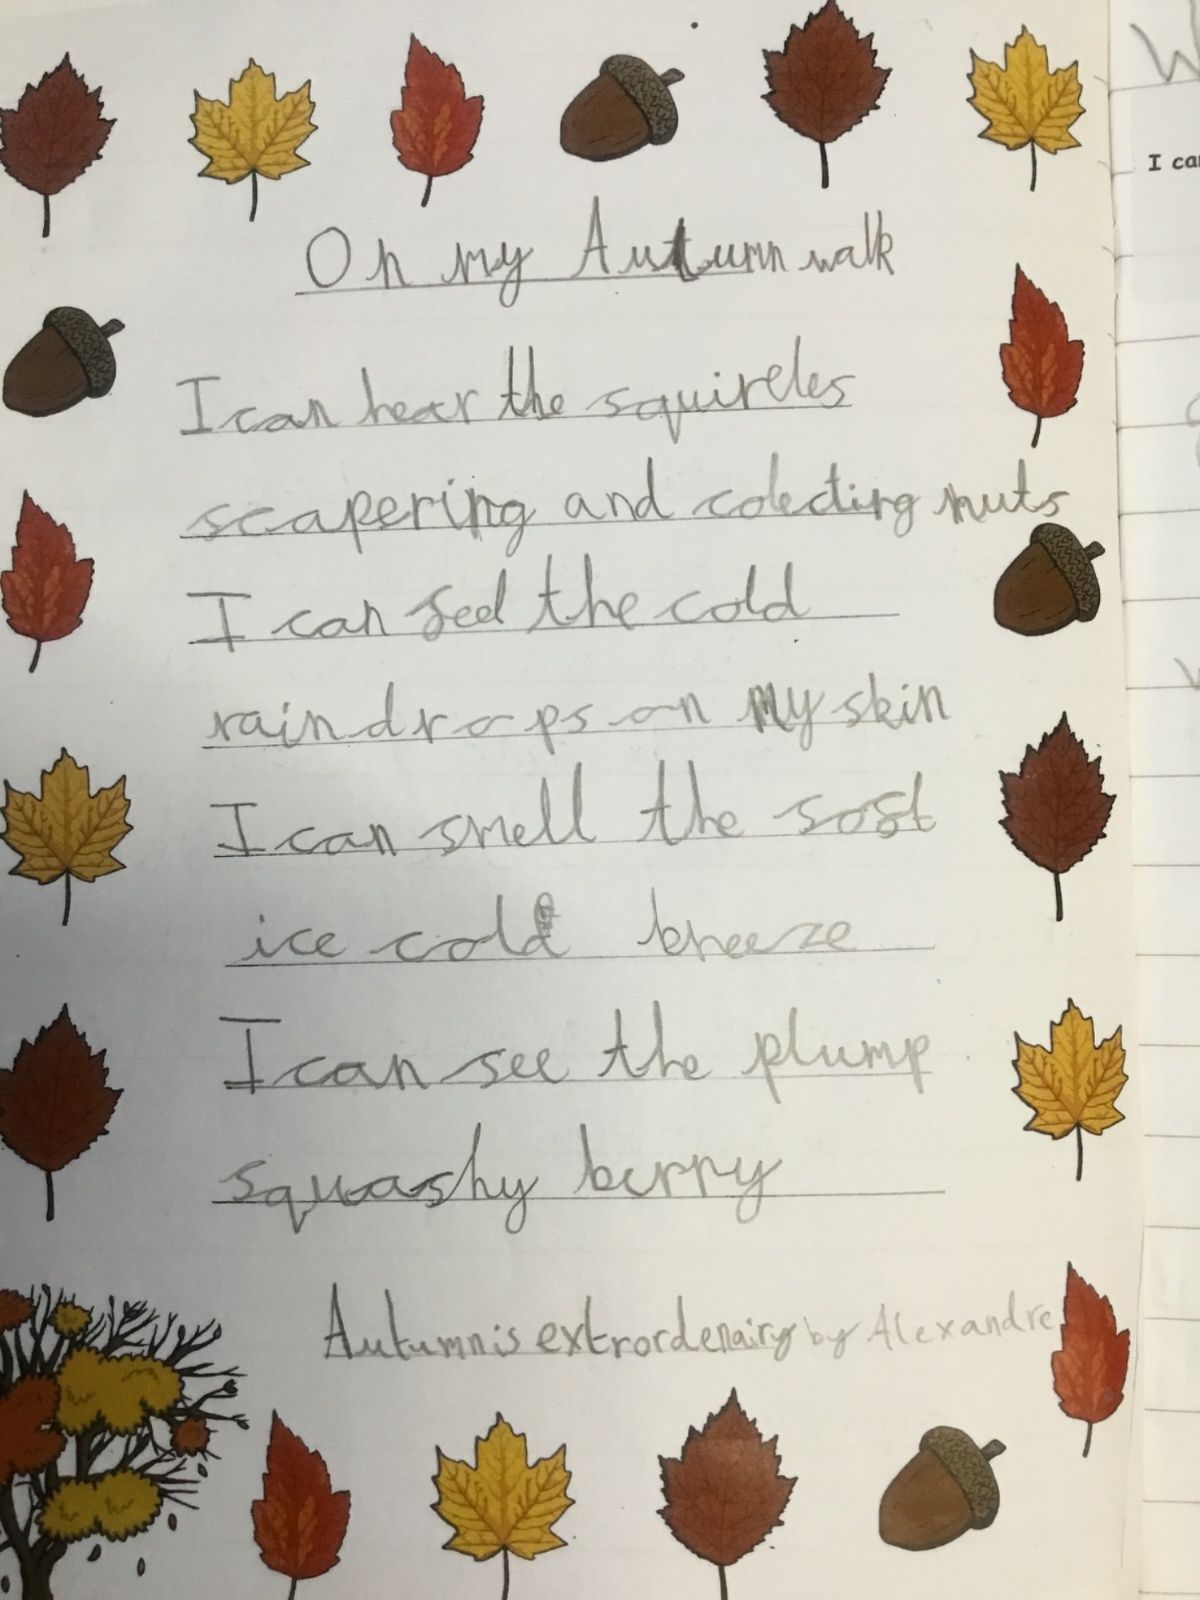 On my Autumn walk
I can hear the squireles
scapering and colecting nuts
I can feel the cold
raindrops on my skin
I can smell the soft
ice cold breeze
I can see the plump
squashy berry
Autumn is extrordenairy by Alexandre
I ca